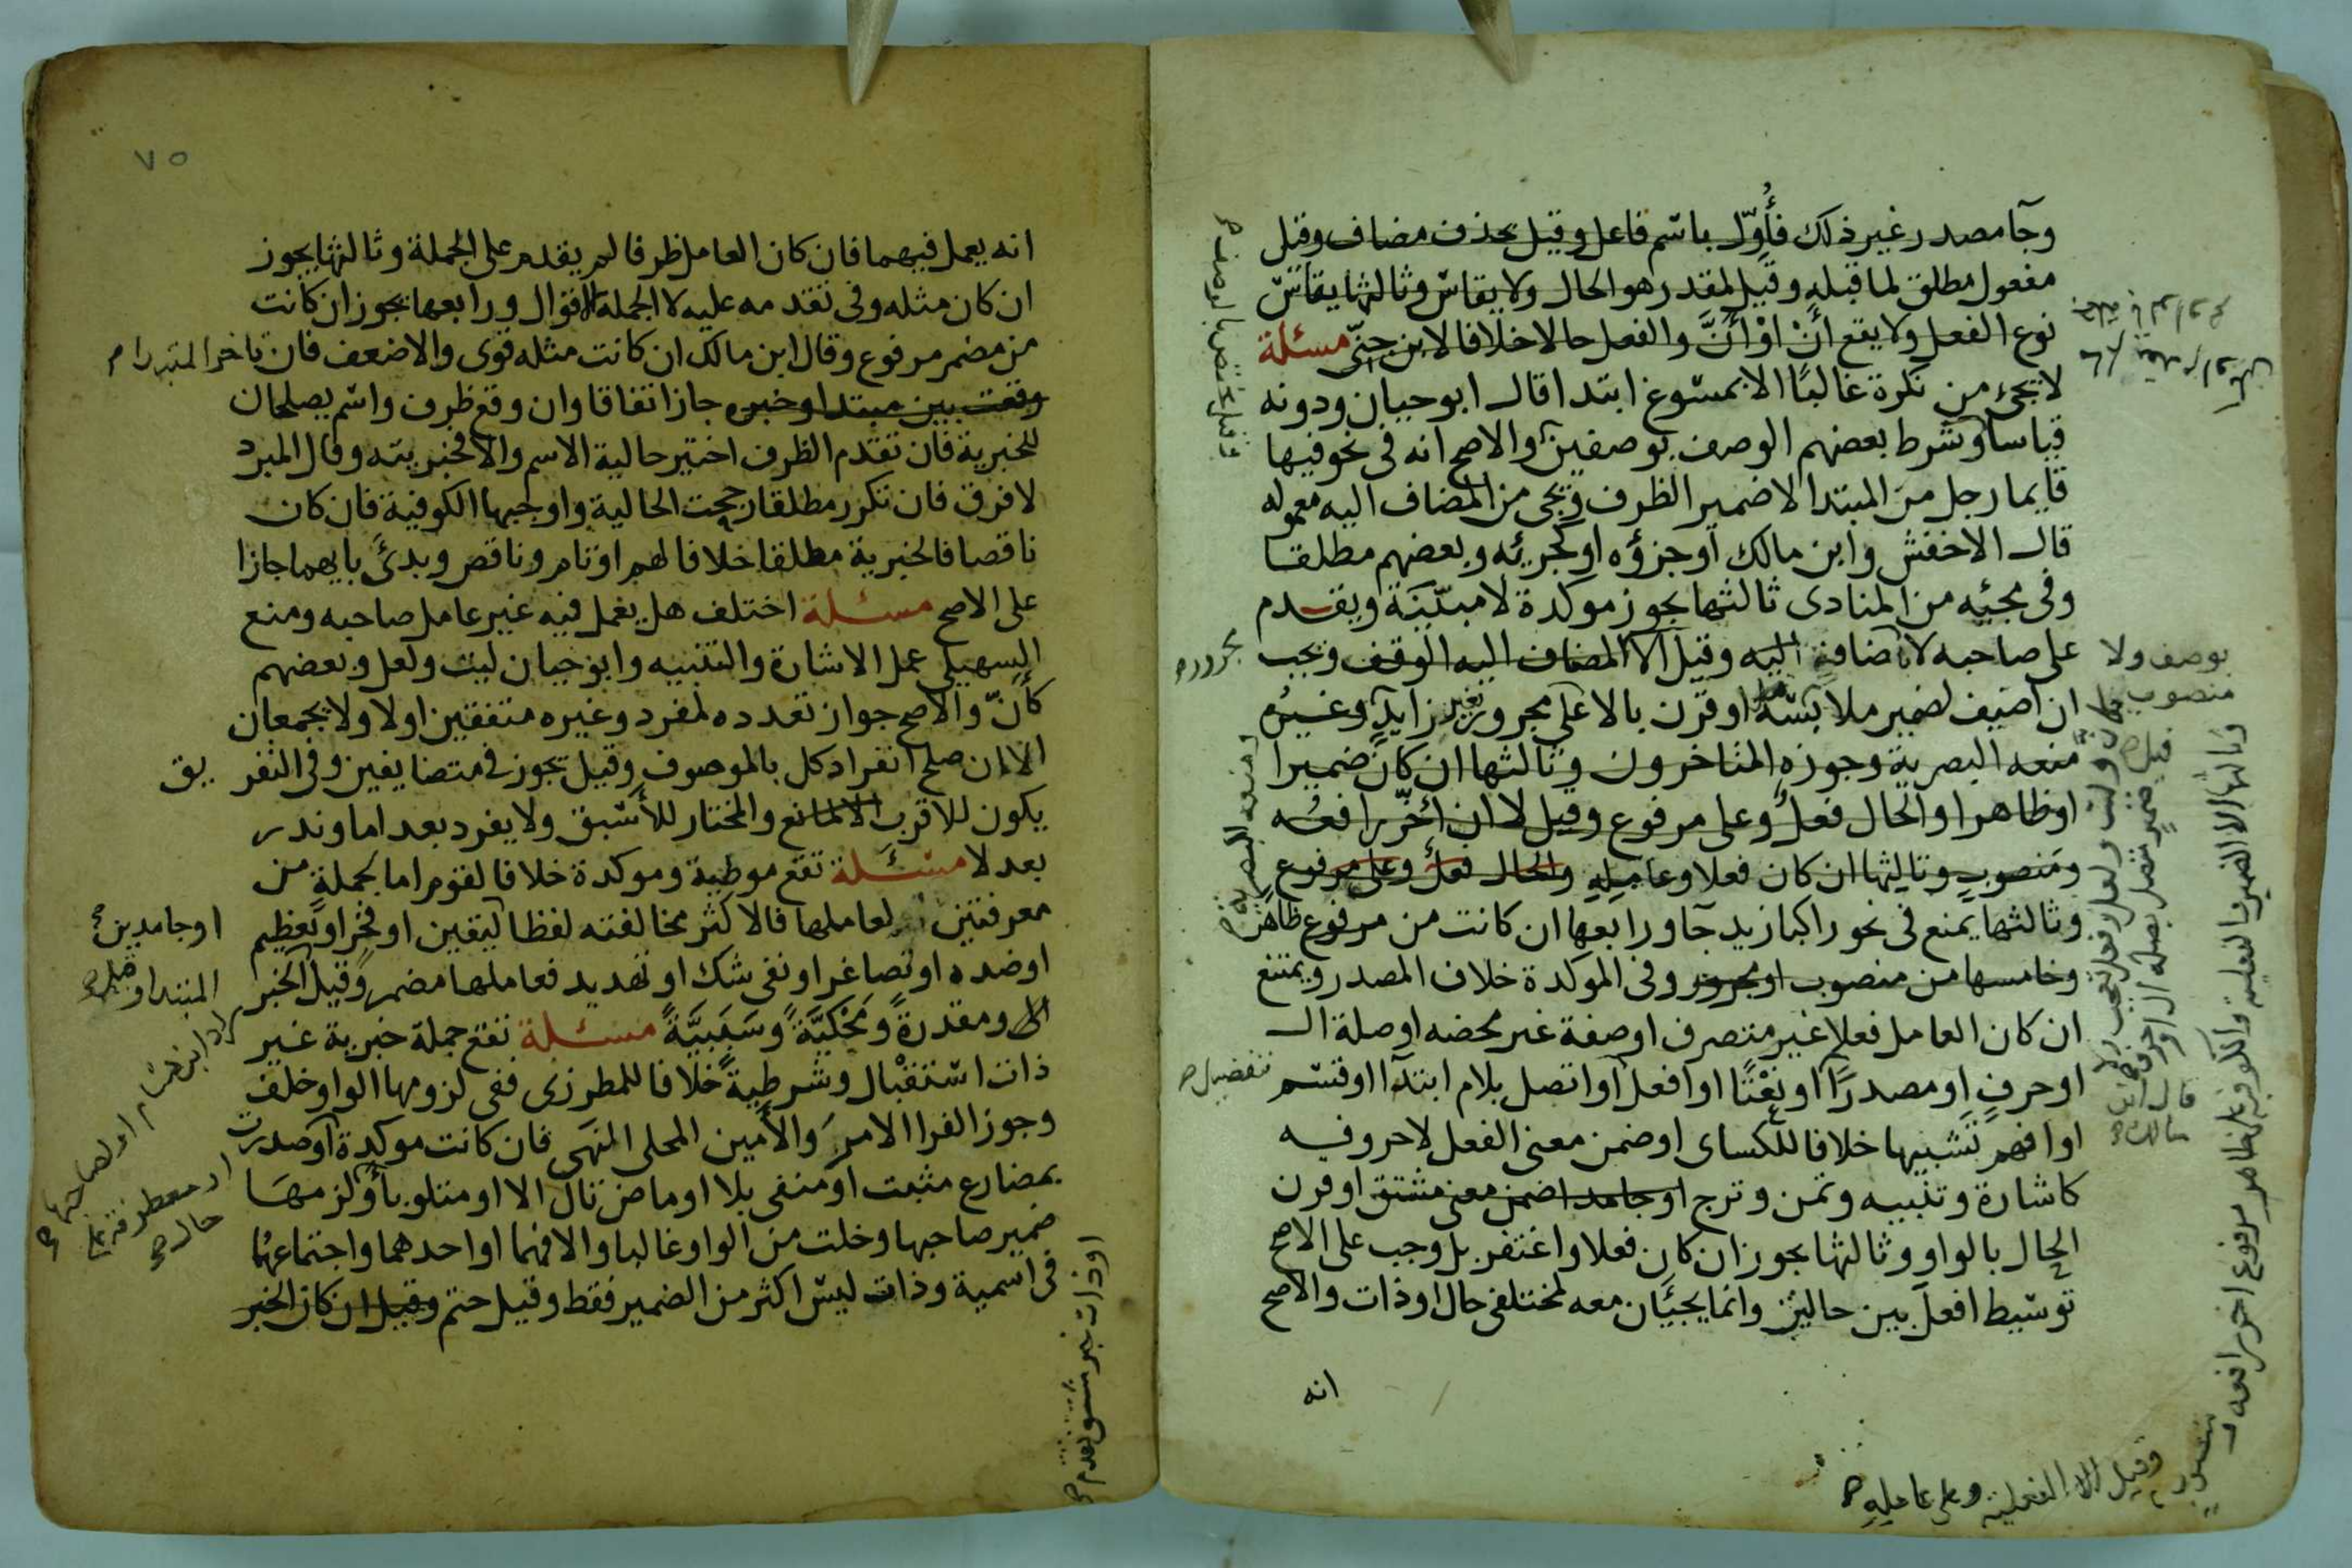 وجآ مصدر غير ذلك فأُوّل باسم فاعل وقيل بحذف مضاف وقيل
مفعول مطلق لما قبله وقيل لمقدر هو الحال ولا يقاس وثالثها يقاس
نوع الفعل ولا يقع أنْ اوْ أنَّ والفعل حالا خلافا لابن جنّي مسئلة
لا تجئ من نكرة غالبًا الا بمسوغ ابتدا قال ابو حيان ودونه
قياسا وشرط بعضهم الوصف بوصفين والاصح انه في نحو فيها
قايما رجل من المبتدا لا ضمير الظرف ويجي من المضاف اليه معموله
قال الاخفش وابن مالك أو جزؤه او كجزئه وبعضهم مطلقا
وفي مجيئه من المنادى ثالثها يجوز موكدة لا مبيّنَة ويقدم
على صاحبه لا باضافة اليه وقيل الا المضاف اليه الوقف ويجب
ان اضيف لضمير ملابسه او قرن بالا على مجرور بغير زايد وغيره
منعه البصرية وجوزه المتاخرون وثالثها ان كان ضميرا
او ظاهرا والحال فعل وعلى مرفوع وقيل لا ان أخّر رافعُه
ومنصوب وثالثها ان كان فعلا وعامله والحال فعل وعلى مرفوع
وثالثها يمنع في نحو راكبا زيد جآ ورابعها ان كانت من مرفوع ظاهر
وخامسها من منصوب او مجرور وفي الموكدة خلاف المصدر ويمتنع
ان كان العامل فعلا غير متصرف او صفة غير محضه او صلة ال
او حرفٍ او مصدرًا او نعْتًا او أفعل أو اتصل بلام ابتدآ او قسم
او افهم تشبيها خلافا للكساى او ضمن معنى الفعل لا حروفه
كاشارة وتنبيه وتمن وترج او جامد اضمن معنى مشتق او قرن
الحال بالواو وثالثها يجوز ان كان فعلا واغتفر بل وجب على الاصح
توسيط افعل بين حالين وانما يجيئان معه لمختلفى حال او ذات والاصح
انه
بوصف ولا
منصوب
مجرور
تفضيل
قال ابن
مالك
وثالثها الا الضمير والفعلية والكوفية على ظاهر مرفوع اخر رافعه
وقيل الا الفعلية وعلى عامله
٧٥
انه يعمل فيهما فان كان العامل ظرفا لم يقدم على الجملة وثالثها يجوز
ان كان مثله وفى تقدمه عليه لا الجملة اقوال ورابعها يجوز ان كانت
من مضمر مرفوع وقال ابن مالك ان كانت مثله قوى والا ضعف فان تاخر المبتدا
وقعت بين مبتدا وخبره جاز اتفاقا وان وقع ظرف واسم يصلحان
للخبرية فان تقدم الظرف اختير حالية الاسم والا فخبريته وقال المبرد
لا فرق فان تكرر مطلقا رجحت الحالية واوجبها الكوفية فان كان
ناقصا فالخبرية مطلقا خلافا لهم او تام وناقص وبدئ بايهما جازا
على الاصح مسئلة اختلف هل يعمل فيه غير عامل صاحبه ومنع
السهيلي عمل الاشارة والتنبيه وابو حيان ليت ولعل وبعضهم
كأنّ والاصح جواز تعدده لمفرد وغيره متفقين اولا ولا يجمعان
الا ان صلح انفراد كل بالموصوف وقيل يجوز في متضايفين وفى التفريق
يكون للاقرب الا لمانع والمختار للأسبق ولا يفرد بعد اما وندر
بعد لا مسئلة تقع موطية وموكدة خلافا لقوم اما لجملةٍ من
معرفتين او لعاملها فالاكثر مخالفته لفظا ليقين او فخر او تعظيم
او ضده او تصاغر او نفى شك او تهديد فعاملها مضمر وقيل الخبر
ومقدرةً ومَحْكيَّةً وسَبَبيَّةً مسئلة تقع جملة خبرية غير
ذات استقبال وشرطية خلافا للمطرزى ففى لزومها الواو خلف
وجوز الفرا الامر والأمين المحلى النهي فان كانت موكدة أو صدرت
بمضارع مثبت او منفى بلا او ماض تال الا او متلو بأو لزمها
ضمير صاحبها وخلت من الواو غالبا والا فهما او احدهما واجتماعهما
فى اسمية وذات ليس اكثر من الضمير فقط وقيل حتم وقيل ان كان الخبر
او جامدين
المبتدا وقيل